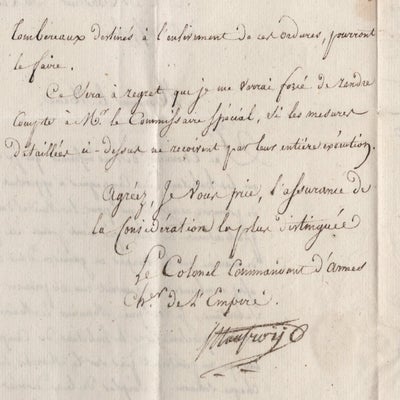 Tombereaux destinés à l'enlèvement de ces ordures, pourront
le faire.
Ce sera à regret que je me verrai forcé de rendre
Compte à Mr. le Commissaire Spécial, si les mesures
détaillées ci-dessus ne reçoivent pas leur entière exécution.
Agréez, je vous prie, l'assurance de
la Considération la plus distinguée
Le Colonel Commandant d'armes
Chr. de l'Empire.